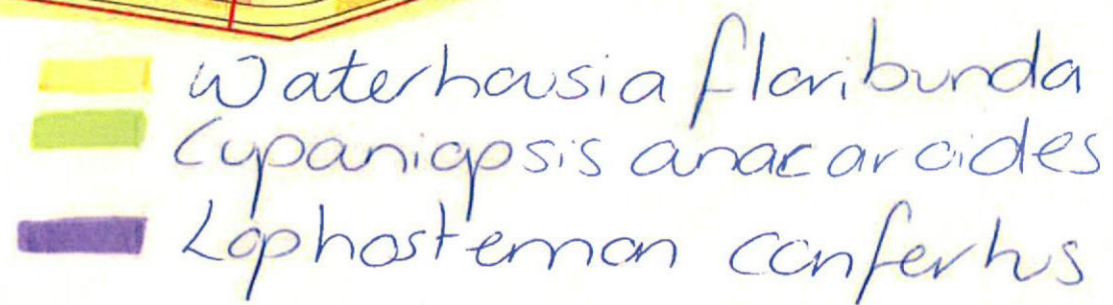 Waterhousia floribunda
Cupaniopsis anacaroides
Lophostemon confertus